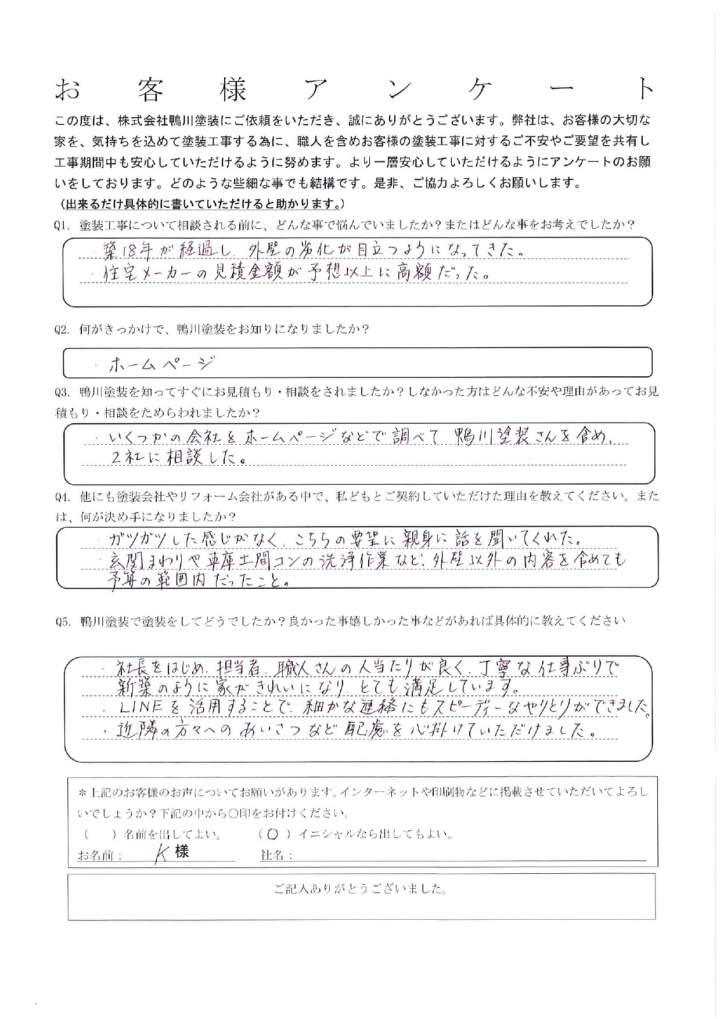 お客様アンケート
この度は、株式会社鴨川塗装にご依頼をいただき、誠にありがとうございます。弊社は、お客様の大切な
家を、気持ちを込めて塗装工事する為に、職人を含めお客様の塗装工事に対するご不安やご要望を共有し
工事期間中も安心していただけるように努めます。より一層安心していただけるようにアンケートのお願
いをしております。どのような些細な事でも結構です。是非、ご協力よろしくお願いします。
（出来るだけ具体的に書いていただけると助かります。）
Q1. 塗装工事について相談される前に、どんな事で悩んでいましたか？またはどんな事をお考えでしたか？
・築18年が経過し、外壁の劣化が目立つようになってきた。
・住宅メーカーの見積金額が予想以上に高額だった。
Q2. 何がきっかけで、鴨川塗装をお知りになりましたか？
・ホームページ
Q3. 鴨川塗装を知ってすぐにお見積もり・相談をされましたか？しなかった方はどんな不安や理由があってお見
積もり・相談をためらわれましたか？
・いくつかの会社をホームページなどで調べて 鴨川塗装さんを含め、
2社に相談した。
Q4. 他にも塗装会社やリフォーム会社がある中で、私どもとご契約していただけた理由を教えてください。また
は、何が決め手になりましたか？
・ガツガツした感じがなく、こちらの要望に親身に話を聞いてくれた。
・玄関まわりや車庫土間コンの洗浄作業など、外壁以外の内容を含めても
予算の範囲内だったこと。
Q5. 鴨川塗装で塗装をしてどうでしたか？良かった事嬉しかった事などがあれば具体的に教えてください
・社長をはじめ、担当者、職人さんの人当たりが良く、丁寧な仕事ぶりで
新築のように家がきれいになり、とても満足しています。
・LINEを活用することで、細かな連絡にもスピーディーなやりとりができました。
・近隣の方々へのあいさつなど配慮を心掛けていただけました。
＊上記のお客様のお声についてお願いがあります。インターネットや印刷物などに掲載させていただいてよろし
いでしょうか？下記の中から〇印をお付けください。
（　）名前を出してよい。　（〇）イニシャルなら出してもよい。
お名前：K様　社名：
ご記入ありがとうございました。